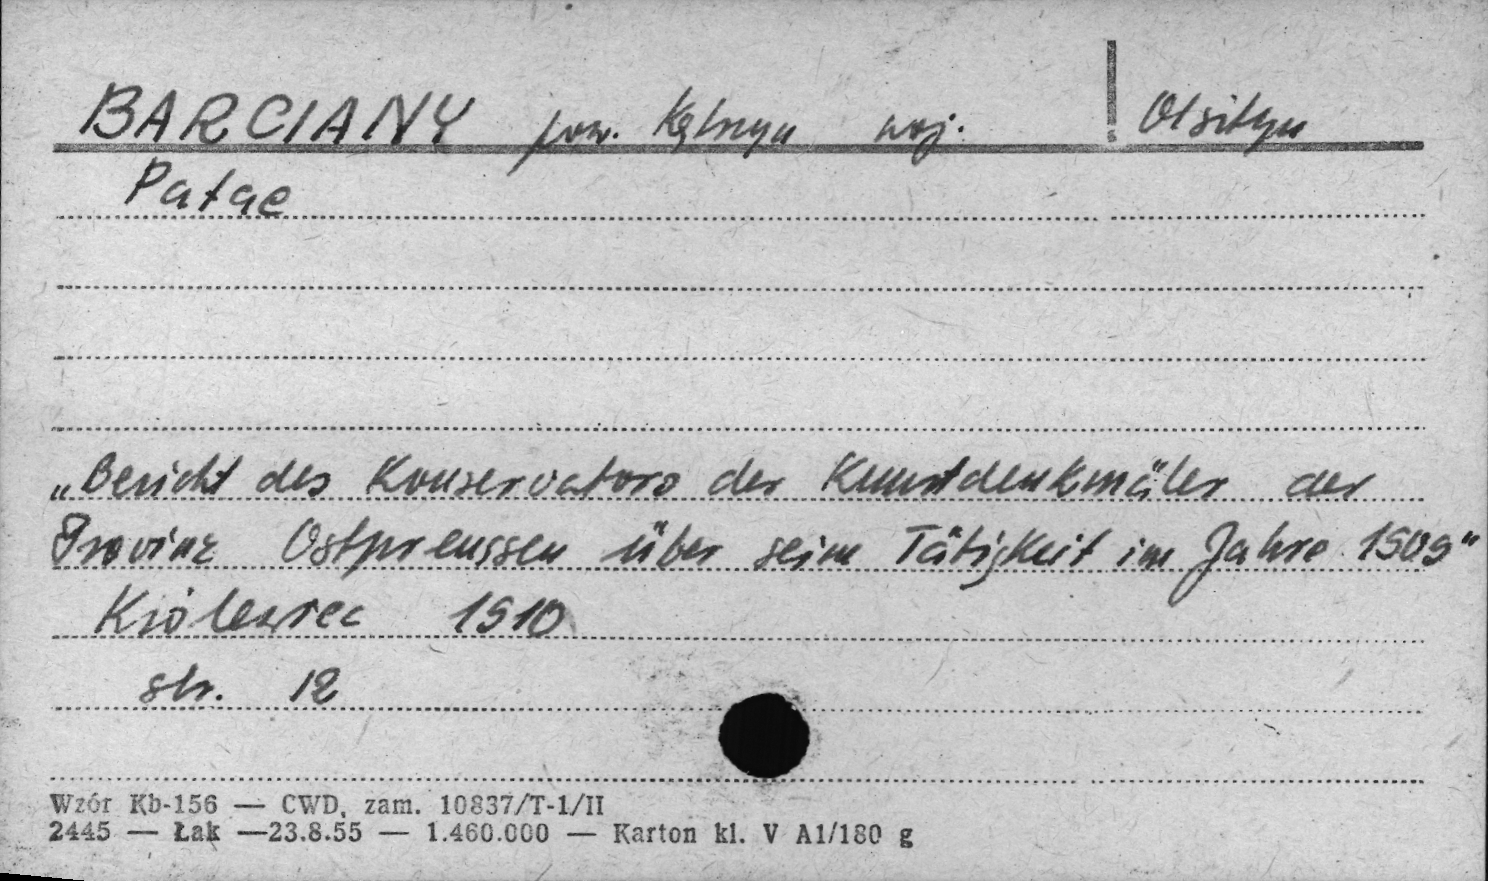 BARCIANY pow. Kętrzyn woj. Olsztyn
Pałac
„Bericht des Konservators der Kunstdenkmäler der
Provinz Ostpreussen über seine Tätigkeit im Jahre 1909"
Królewiec 1910
str. 12
Wzór Kb-156 — CWD, zam. 10837/T-1/II
2445 — Łak —23.8.55 — 1.460.000 — Karton kl. V A1/180 g